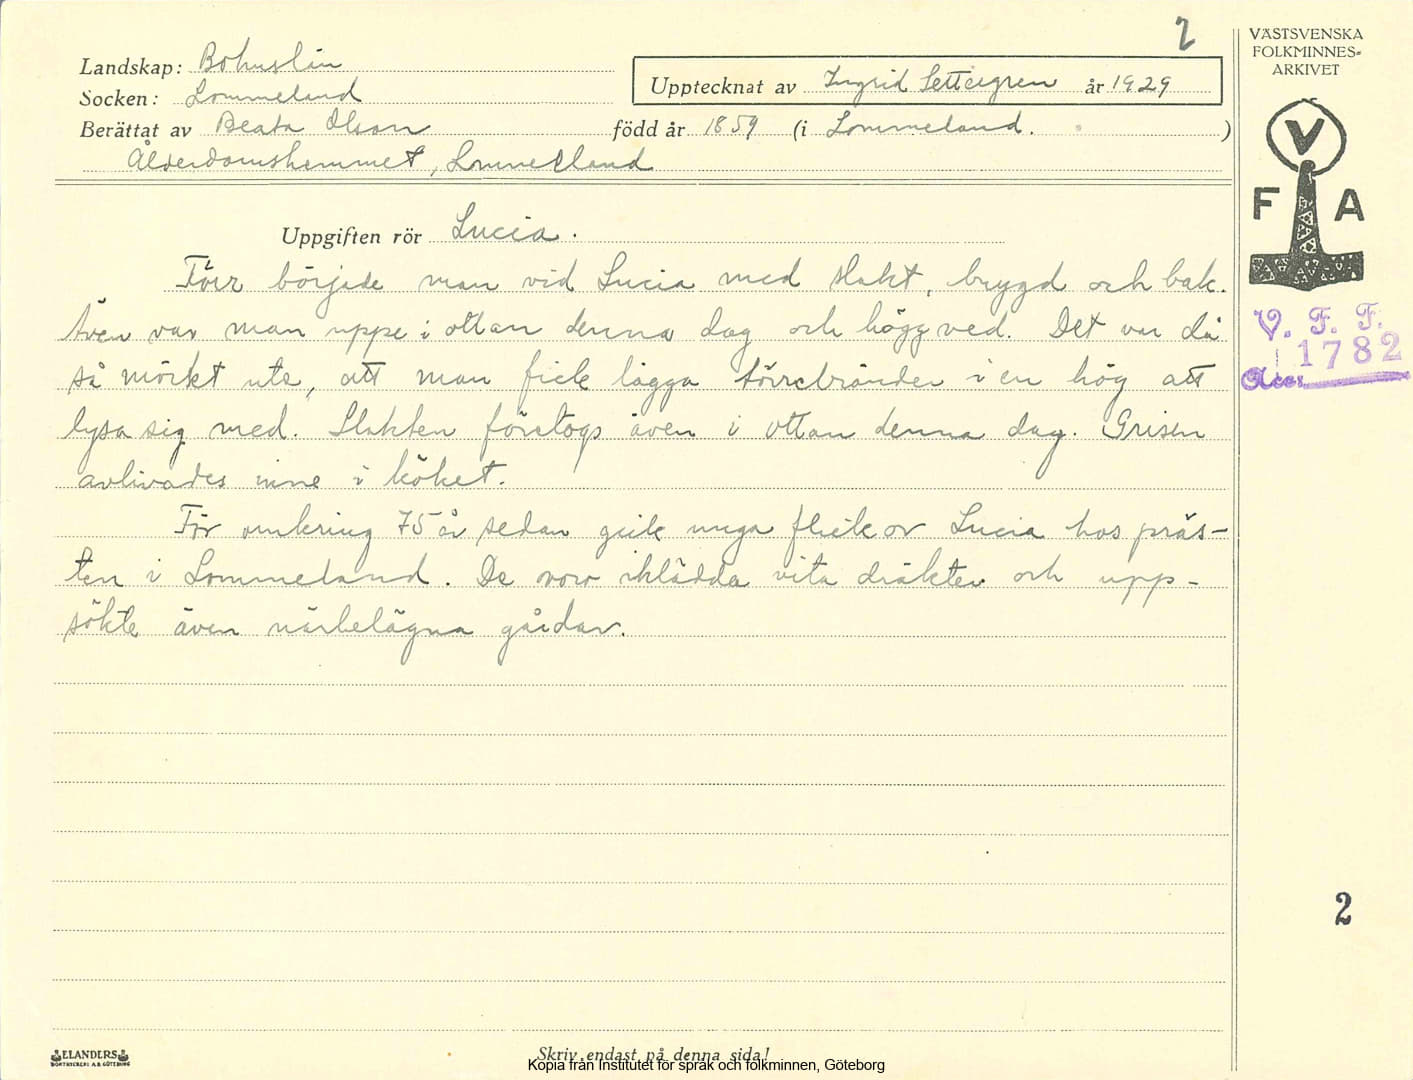 2
Landskap: Bohuslän
Socken: Lommeland
Berättat av Beata Olson
Ålderdomshemmet, Lommeland
Upptecknat av Ingrid Settergren år 1929
född år 1859 (i Lommeland. )
VÄSTSVENSKA
FOLKMINNES-
ARKIVET
V
F A
V. F. F.
1782
Acc.
Uppgiften rör Lucia.
Förr började man vid Lucia med slakt, brygd och bak.
Även var man uppe i ottan denna dag och högg ved. Det var då
så mörkt ute, att man fick lägga törrebränder i en hög att
lysa sig med. Slakten företogs även i ottan denna dag. Grisen
avlivades inne i köket.
För omkring 75 år sedan gick unga flickor Lucia hos präs-
ten i Lommeland. De voro iklädda vita dräkter och upp-
sökte även närbelägna gårdar.
2
ELANDERS
BOKTRYCKERI A.B. GÖTEBORG
Skriv endast på denna sida!
Kopia från Institutet för språk och folkminnen, Göteborg